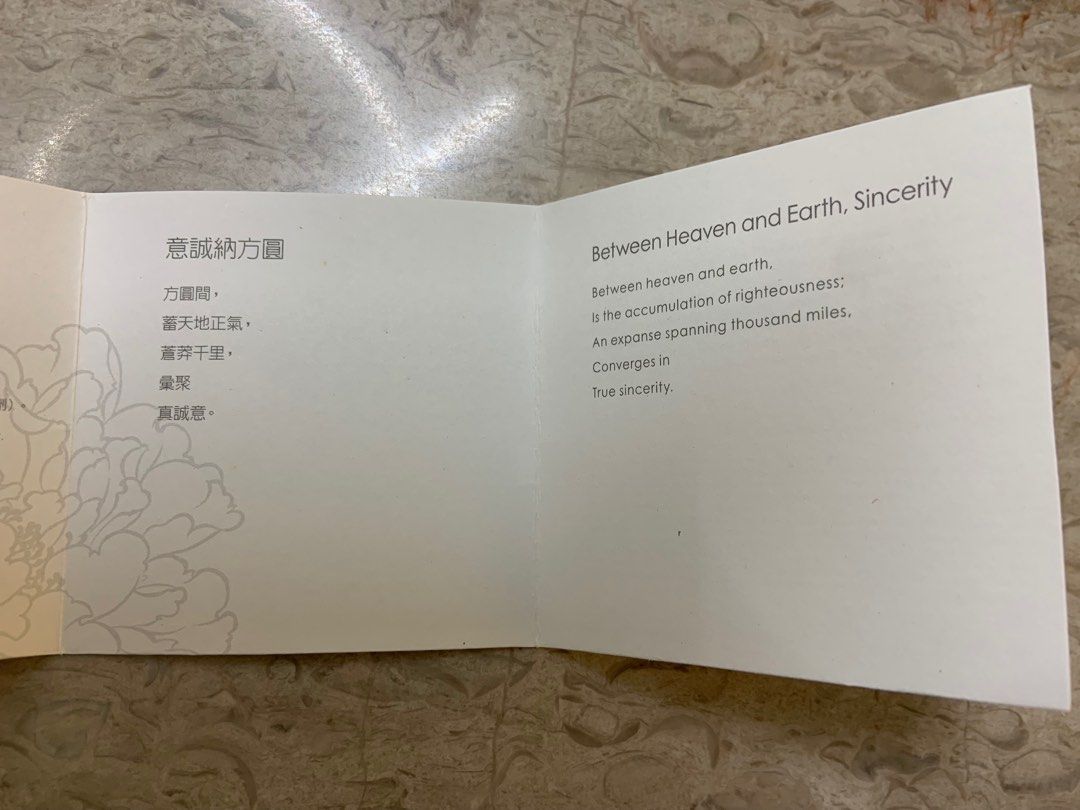 意誠納方圓
方圓間，
蓄天地正氣，
蒼莽千里，
彙聚
真誠意。
Between Heaven and Earth, Sincerity
Between heaven and earth,
Is the accumulation of righteousness;
An expanse spanning thousand miles,
Converges in
True sincerity.